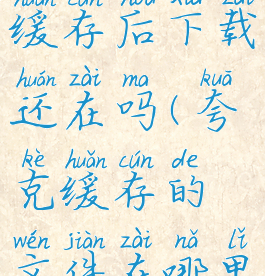 huǎn cún hòu xià zài
缓存后下载
huán zài ma kuā
还在吗(夸
kè huǎn cún de
克缓存的
wén jiàn zài nǎ lǐ
文件在哪里